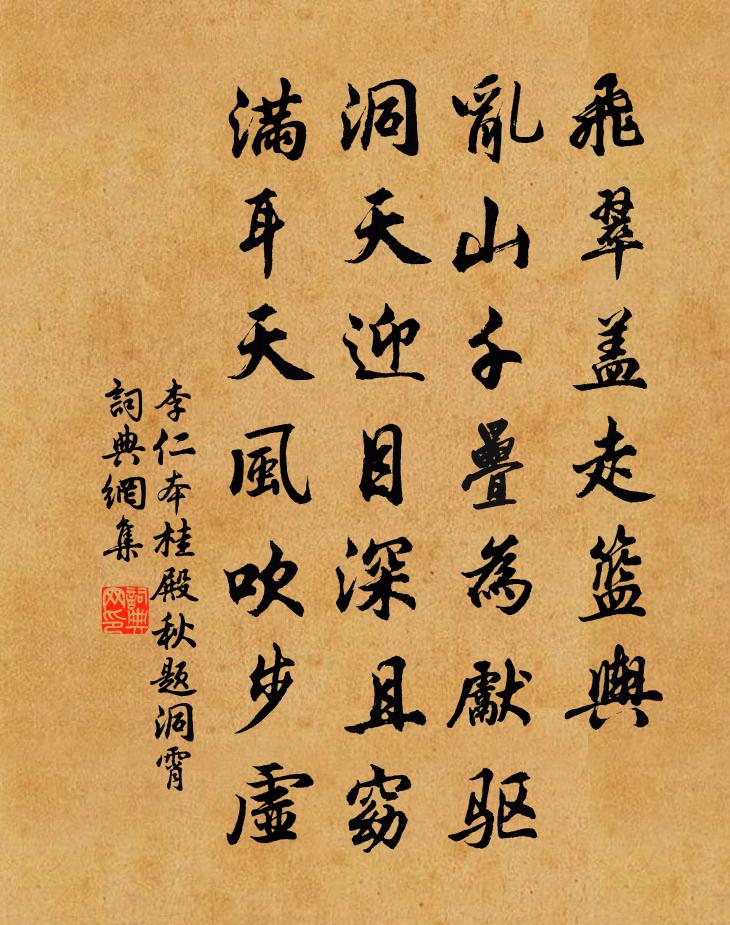 飛翠蓋走籃輿
亂山千疊為獻驅
洞天迎目深且窈
滿耳天風吹步虛
李仁本桂殿秋题洞霄
詞典網集
詞典网印